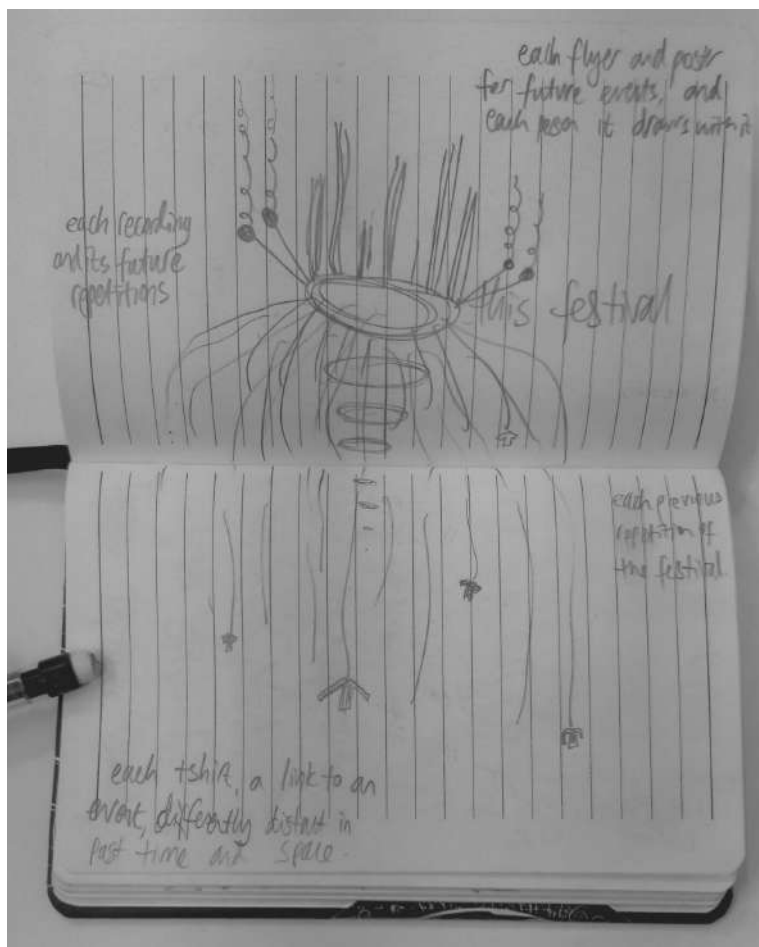 each flyer and poster
for future events, and
each person it draws with it
each recording
and its future
repetitions
this festival
each previous
repetition of
the festival
each tshirt, a link to an
event, differently distant in
past time and space.